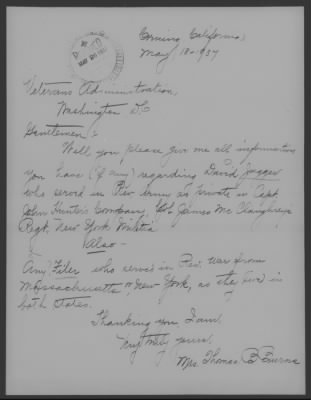 Corning California,
May 18-1937
MAY 25 1937
Veterans Administration,
Washington DC
Gentlemen;
Will you please give me all information
you have (if any) regarding David
who served in Rev. Army as private in Capt.
John Hunter's Company, Col. James Mc Claughry's
Regt, New York Militia
Also-
Amy Filer who served in Rev. War from
Massachusetts or New-York, as they lived in
both States.
Thanking you, I am,
Very truly yours,
Mrs. Thomas B Burns